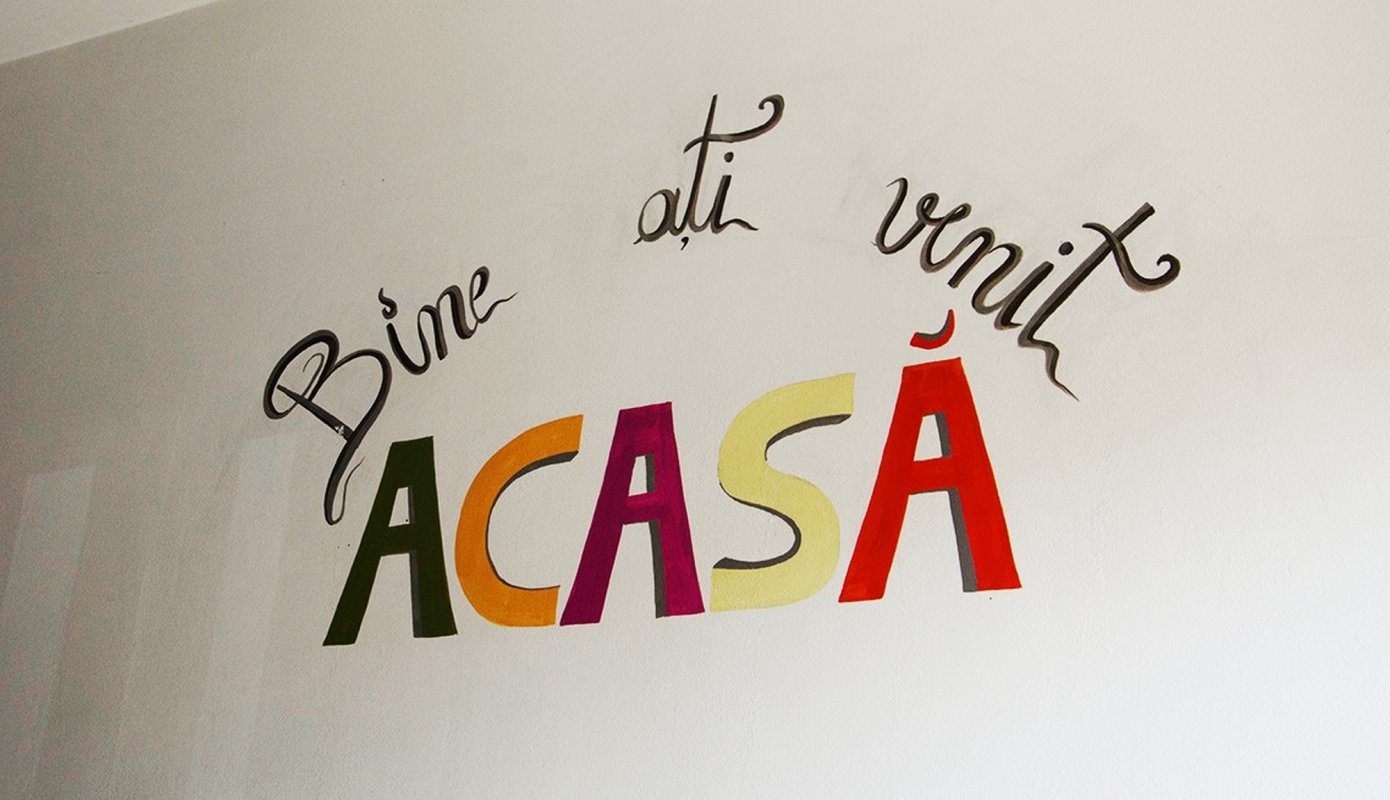 Bine ați venit
ACASĂ